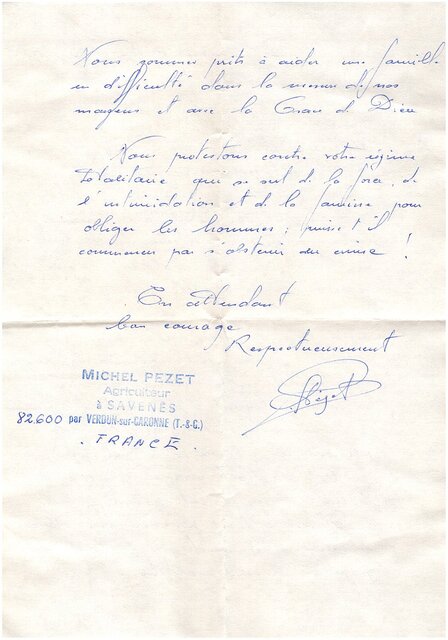 Nous sommes prêts à aider une famille
en difficulté dans la mesure de nos
moyens et avec la Grace de Dieu
Nous protestons contre votre régime
totalitaire qui se sert de la force, de
l'intimidation et de la famine pour
obliger les hommes ; puisse t'il
commencer par s'abstenir du crime !
En attendant
bon courage
Respectueusement
Pézet
MICHEL PEZET
Agriculteur
à SAVENÈS
82.600 par VERDUN-sur-GARONNE (T.-&-G.)
. FRANCE .